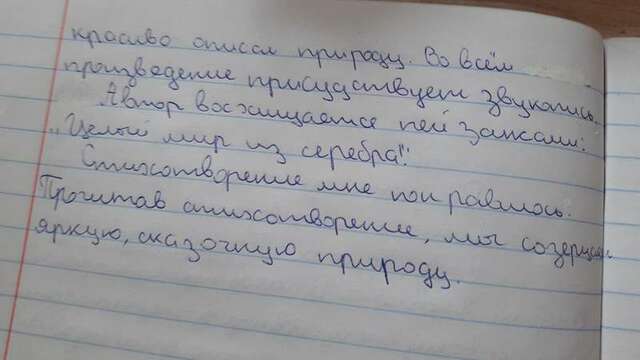 красиво описал природу. Во всём
произведение присудствует звукопись.
Автор восхищается пейзажами:
"Целый мир из серебра!"
Стихотворение мне понравилось.
Прочитав стихотворение, мы созерцаем
яркую, сказочную природу.